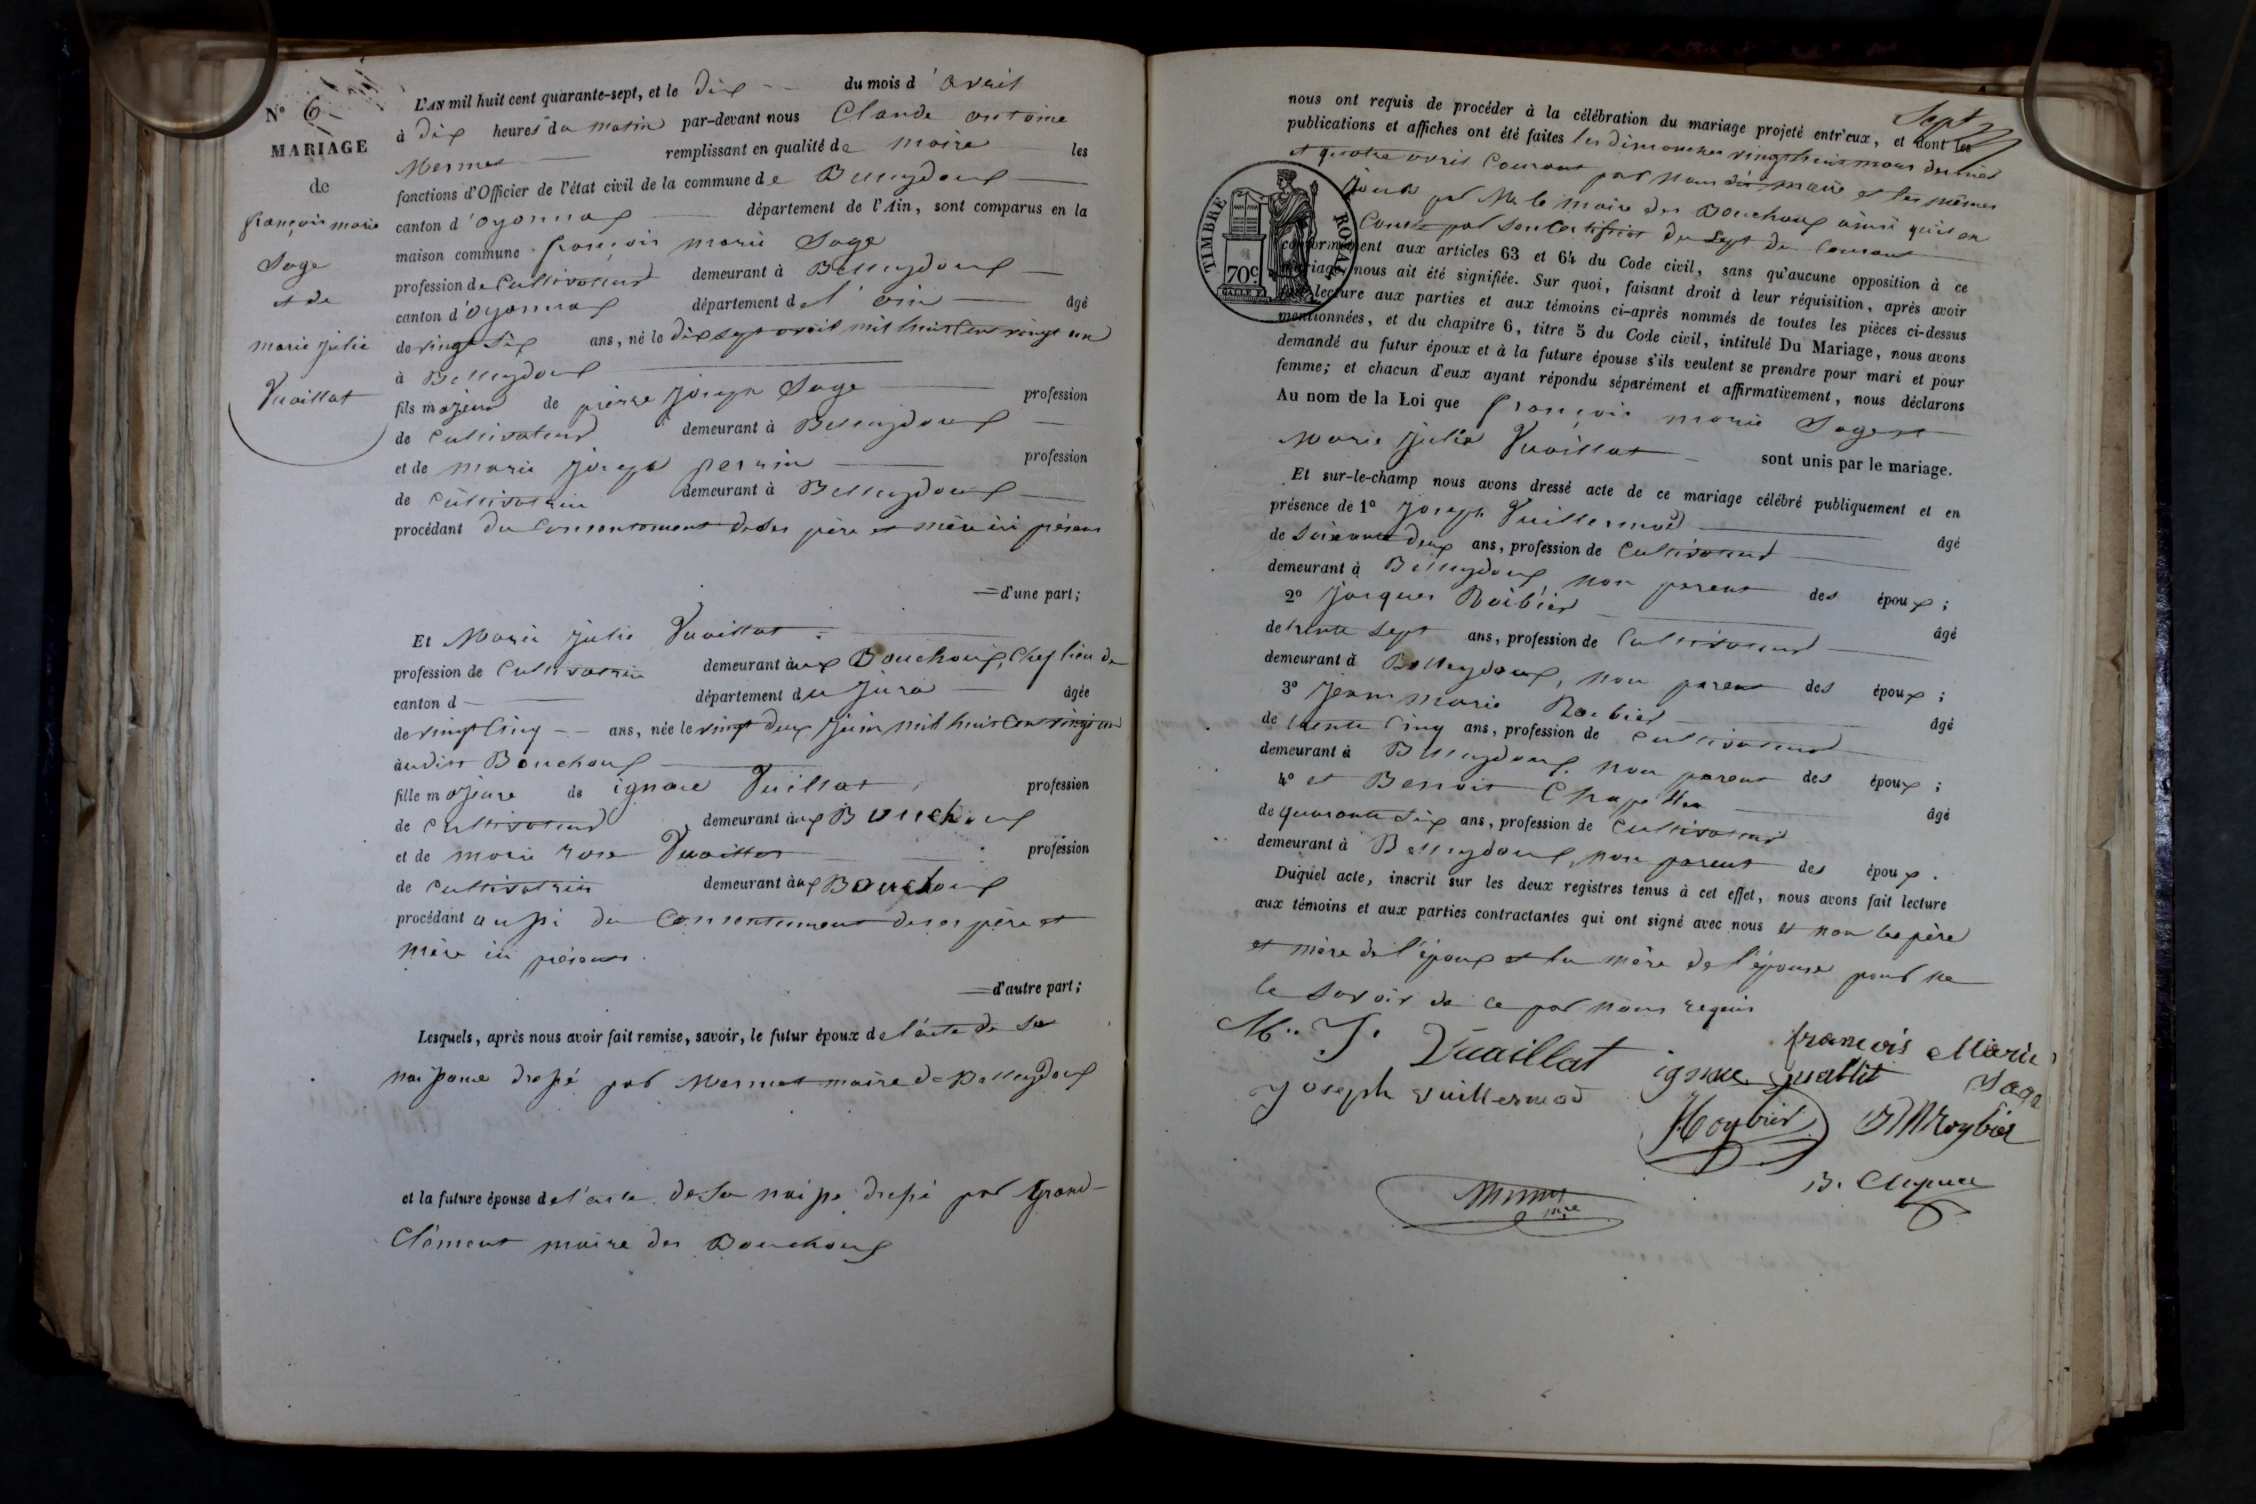 N° 6
MARIAGE
de
françois marie
Sage
et de
marie julie
Vuaillat
L'AN mil huit cent quarante-sept, et le dix du mois d'avril
à dix heures du matin par-devant nous Claude antoine
Mermet remplissant en qualité de maire les
fonctions d'Officier de l'état civil de la commune de Belleydoux
canton d'oyonnax département de l'Ain, sont comparus en la
maison commune françois marie Sage
profession de Cultivateur demeurant à Belleydoux
canton d'oyonnax département de l'ain âgé
de vingt six ans, né le dix sept avril mil huit cent vingt un
à Belleydoux
fils majeur de pierre joseph Sage profession
de Cultivateur demeurant à Belleydoux
et de marie joseph perrin profession
de Cultivatrice demeurant à Belleydoux
procédant du consentement de ses père et mère ici présens
d'une part;
Et Marie julie Vuaillat
profession de Cultivatrice demeurant aux Bouchoux, Chef lieu de
canton d département du jura âgée
de vingt cinq ans, née le vingt deux juin mil huit cent vingt un
audit Bouchoux
fille majeure de ignace Vuillat profession
de Cultivateur demeurant aux Bouchoux
et de marie rose Vuaillat profession
de Cultivatrice demeurant aux Bouchoux
procédant aussi du Consentement de ses père et
mère ici présens.
d'autre part;
Lesquels, après nous avoir fait remise, savoir, le futur époux de l'acte de sa
naissance dressé par Mermet maire de Belleydoux
et la future épouse de l'acte de sa naisse dressé par grand-
Clément maire des Bouchoux
Sept
nous ont requis de procéder à la célébration du mariage projeté entr'eux, et dont les
publications et affiches ont été faites les dimanches vingt huit mars dernier
et quatre avril Courant par Nous dit maire et les mêmes
jours par Mr le maire des Bouchoux ainsi qu'il en
Conste par son Certificat du sept du Courant
conformément aux articles 63 et 64 du Code civil, sans qu'aucune opposition à ce
mariage nous ait été signifiée. Sur quoi, faisant droit à leur réquisition, après avoir
fait lecture aux parties et aux témoins ci-après nommés de toutes les pièces ci-dessus
mentionnées, et du chapitre 6, titre 5 du Code civil, intitulé Du Mariage, nous avons
demandé au futur époux et à la future épouse s'ils veulent se prendre pour mari et pour
femme; et chacun d'eux ayant répondu séparément et affirmativement, nous déclarons
Au nom de la Loi que françois marie Sage et
Marie julie Vuaillat sont unis par le mariage.
Et sur-le-champ nous avons dressé acte de ce mariage célébré publiquement et en
présence de 1° joseph Vuillermod âgé
de soixante deux ans, profession de Cultivateur
demeurant à Belleydoux, non parent des époux;
2° jacques Roibier âgé
de trente sept ans, profession de Cultivateur
demeurant à Belleydoux, non parent des époux;
3° jean marie Roibier âgé
de trente cinq ans, profession de Cultivateur
demeurant à Belleydoux, non parent des époux;
4° et Benoit Chapellu âgé
de quarante six ans, profession de Cultivateur
demeurant à Belleydoux, non parent des époux.
Duquel acte, inscrit sur les deux registres tenus à cet effet, nous avons fait lecture
aux témoins et aux parties contractantes qui ont signé avec nous et non les père
et mère de l'époux et la mère de l'épouse pour ne
le savoir de ce par nous requis
M. J. Vuaillat ignace vuallit françois Marie
Sage
joseph vuillermod
Roybier JMRoybier
B.
Mermet mre
TIMBRE ROYAL
70c.